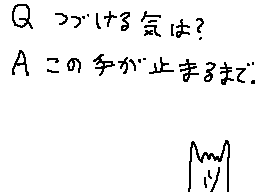 Q つづける気は?
A この手が止まるまで。